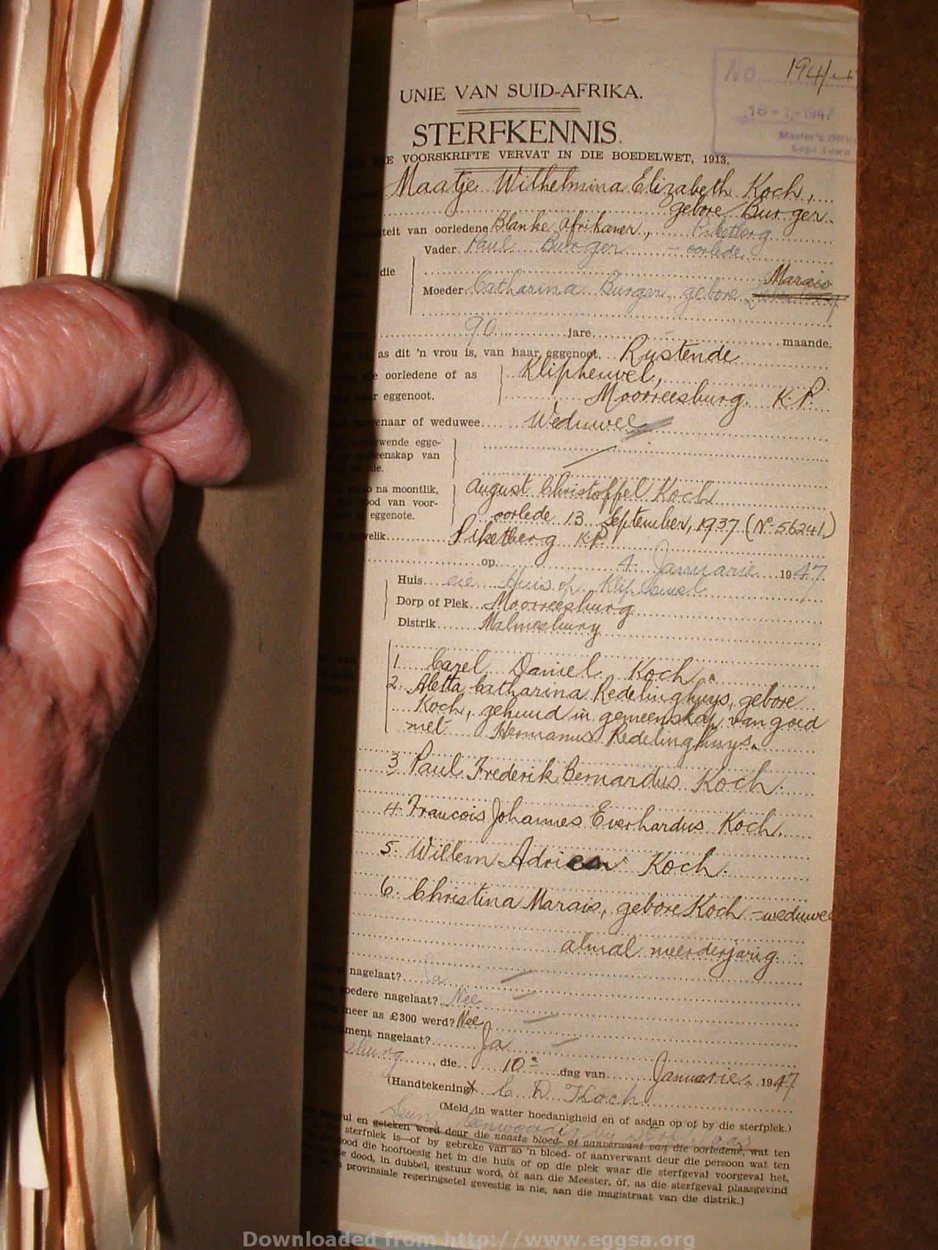 No. 194/47
UNIE VAN SUID-AFRIKA.
18-1-1947
STERFKENNIS.
Master's Office
Cape Town
VOORSKRIFTE VERVAT IN DIE BOEDELWET, 1913.
Maatje Wilhelmina Elizabeth Koch,
gebore Burger
van oorledene Blanke Afrikaner, Piketberg
Vader Paul Burger - oorlede
die
Moeder Catharina Burger, gebore Marais
90 jare maande.
as dit 'n vrou is, van haar eggenoot. Rustende
oorledene of as Klipheuvel,
eggenoot. Moorreesburg K.P.
of weduwee Weduwee
wende egge-
van
na moontlik, August Christoffel Koch
van voor-
eggenote. oorlede 13 September, 1937 (No 56241)
Piketberg K.P.
op 4 Januarie 1947
Huis Huis op
Dorp of Plek Moorreesburg
Distrik Malmesbury
1. Carel Daniel Koch.
2. Aletta Catharina Redelinghuys, gebore
Koch, gehuud in gemeenskap van goed
met Hermanus Redelinghuys.
3 Paul Frederik Bernardus Koch.
4. Francois Johannes Everhardus Koch.
5. Willem Adriaan Koch.
6. Christina Marais, gebore Koch - weduwee
almal meerderjarig.
nagelaat? Ja
goedere nagelaat? Nee
meer as £300 werd? Nee
nagelaat? Ja
die 10e dag van Januarie 1947
(Handtekening) X C. D. Koch
(Meld in watter hoedanigheid en of asdan op of by die sterfplek.)
Seun
en geteken word deur die naaste bloed- of aanverwant van die oorledene, wat ten
sterfplek is—of by gebreke van so 'n bloed- of aanverwant deur die persoon wat ten
die hooftoesig het in die huis of op die plek waar die sterfgeval voorgeval het,
dood, in dubbel, gestuur word, óf aan die Meester, óf, as die sterfgeval plaasgevind
provinsiale regeringsetel gevestig is nie, aan die magistraat van die distrik.]
Downloaded from http://www.eggsa.org